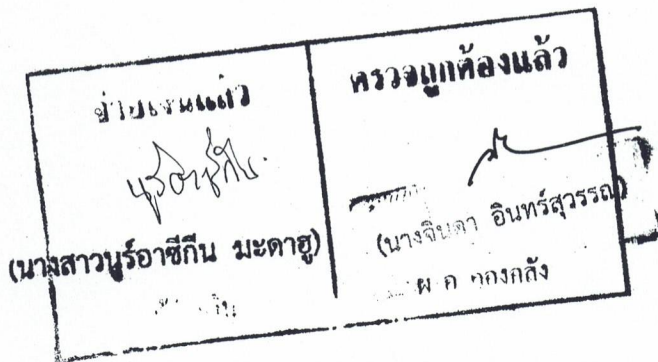 จ่ายเงินแล้ว
นูร์อาซีกีน
(นางสาวนูร์อาซีกีน มะดาฮู)
ตรวจถูกต้องแล้ว
(นางจินดา อินทร์สุวรรณ)
ผ อ กองคลัง